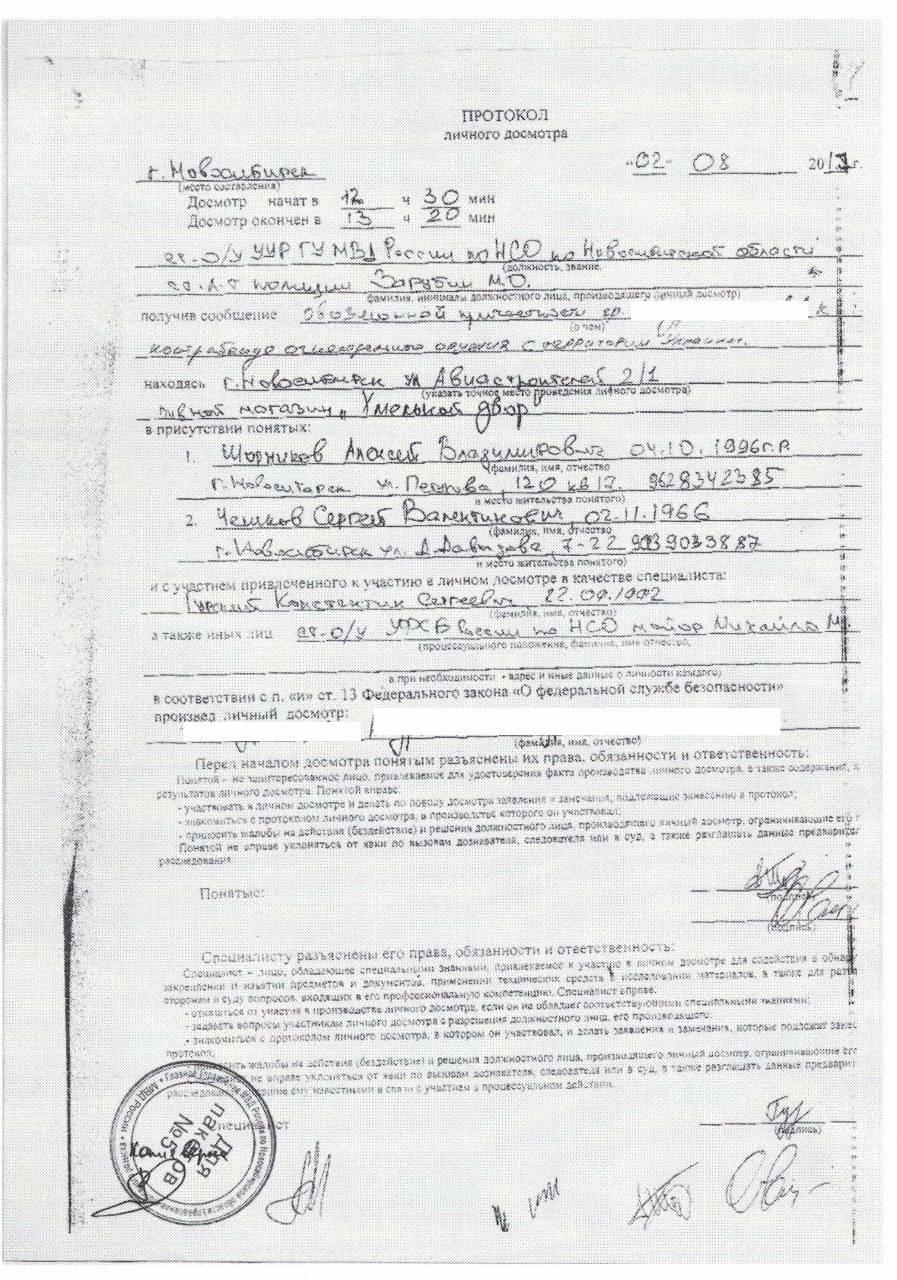 ПРОТОКОЛ
личного досмотра
г. Новосибирск
"02" 08 201 г.
(место составления)
Досмотр начат в 12 ч 30 мин
Досмотр окончен в 13 ч 20 мин
ст. О/У УУР ГУ МВД России по НСО по Новосибирской области
(должность, звание,
ст. л-т полиции Зарубин М.О.
фамилия, инициалы должностного лица, производящего личный досмотр)
получив сообщение о возможной причастности гр.
(о чем)
контрабанде огнестрельного оружия с территории Украины.
находясь г. Новосибирск ул Авиастроителей 2/1
(указать точное место проведения личного досмотра)
пивной магазин "Хмельной двор"
в присутствии понятых:
1. Алексей Владимирович 04.10.1996г.р.
(фамилия, имя, отчество
г. Новосибирск ул. 120 кв 17. 9628342385
и место жительства понятого)
2. Чешков Сергей Валентинович, 02.11.1966
(фамилия, имя, отчество
г. Новосибирск ул. Д. Давыдова, 7-22 9039033887
и место жительства понятого)
и с участием привлеченного к участию в личном досмотре в качестве специалиста:
Константин Сергеевич 22.09.1992
(фамилия, имя, отчество)
а также иных лиц ст. О/У УФСБ России по НСО майор Михайло М.
(процессуального положение, фамилия, имя отчество,
а при необходимости - адрес и иные данные о личности каждого)
в соответствии с п. «и» ст. 13 Федерального закона «О федеральной службе безопасности»
произвел личный досмотр:
(фамилия, имя, отчество)
Перед началом досмотра понятым разъяснены их права, обязанности и ответственность:
Понятой - не заинтересованное лицо, привлекаемое для удостоверения факта производства личного досмотра, а также содержания, х
результатов личного досмотра. Понятой вправе:
- участвовать в личном досмотре и делать по поводу досмотра заявления и замечания, подлежащие занесению в протокол;
- знакомиться с протоколом личного досмотра, в производстве которого он участвовал;
- приносить жалобы на действия (бездействие) и решения должностного лица, производящего личный досмотр, ограничивающие его
Понятой не вправе уклоняться от явки по вызовам дознавателя, следователя или в суд, а также разглашать данные предварител
расследования
Понятые:
(подпись)
(подпись)
Специалисту разъяснены его права, обязанности и ответственность:
Специалист – лицо, обладающее специальными знаниями, привлекаемое к участию в личном досмотре для содействия в обнару
закреплении и изъятии предметов и документов, применении технических средств в исследовании материалов, а также для разъя
сторонам и суду вопросов, входящих в его профессиональную компетенцию. Специалист вправе:
- отказаться от участия в производстве личного досмотра, если он не обладает соответствующими специальными знаниями;
- задавать вопросы участникам личного досмотра с разрешения должностного лица, его производящего;
- знакомиться с протоколом личного досмотра, в котором он участвовал, и делать заявления и замечания, которые подлежат занес
протокол;
жалобы на действия (бездействие) и решения должностного лица, производящего личный досмотр, ограничивающие его
не вправе уклоняться от явки по вызовам дознавателя, следователя или в суд, а также разглашать данные предварит
ему известными в связи с участием в процессуальном действии.
Специалист
(подпись)
Для
пакетов
№5
Копия верна